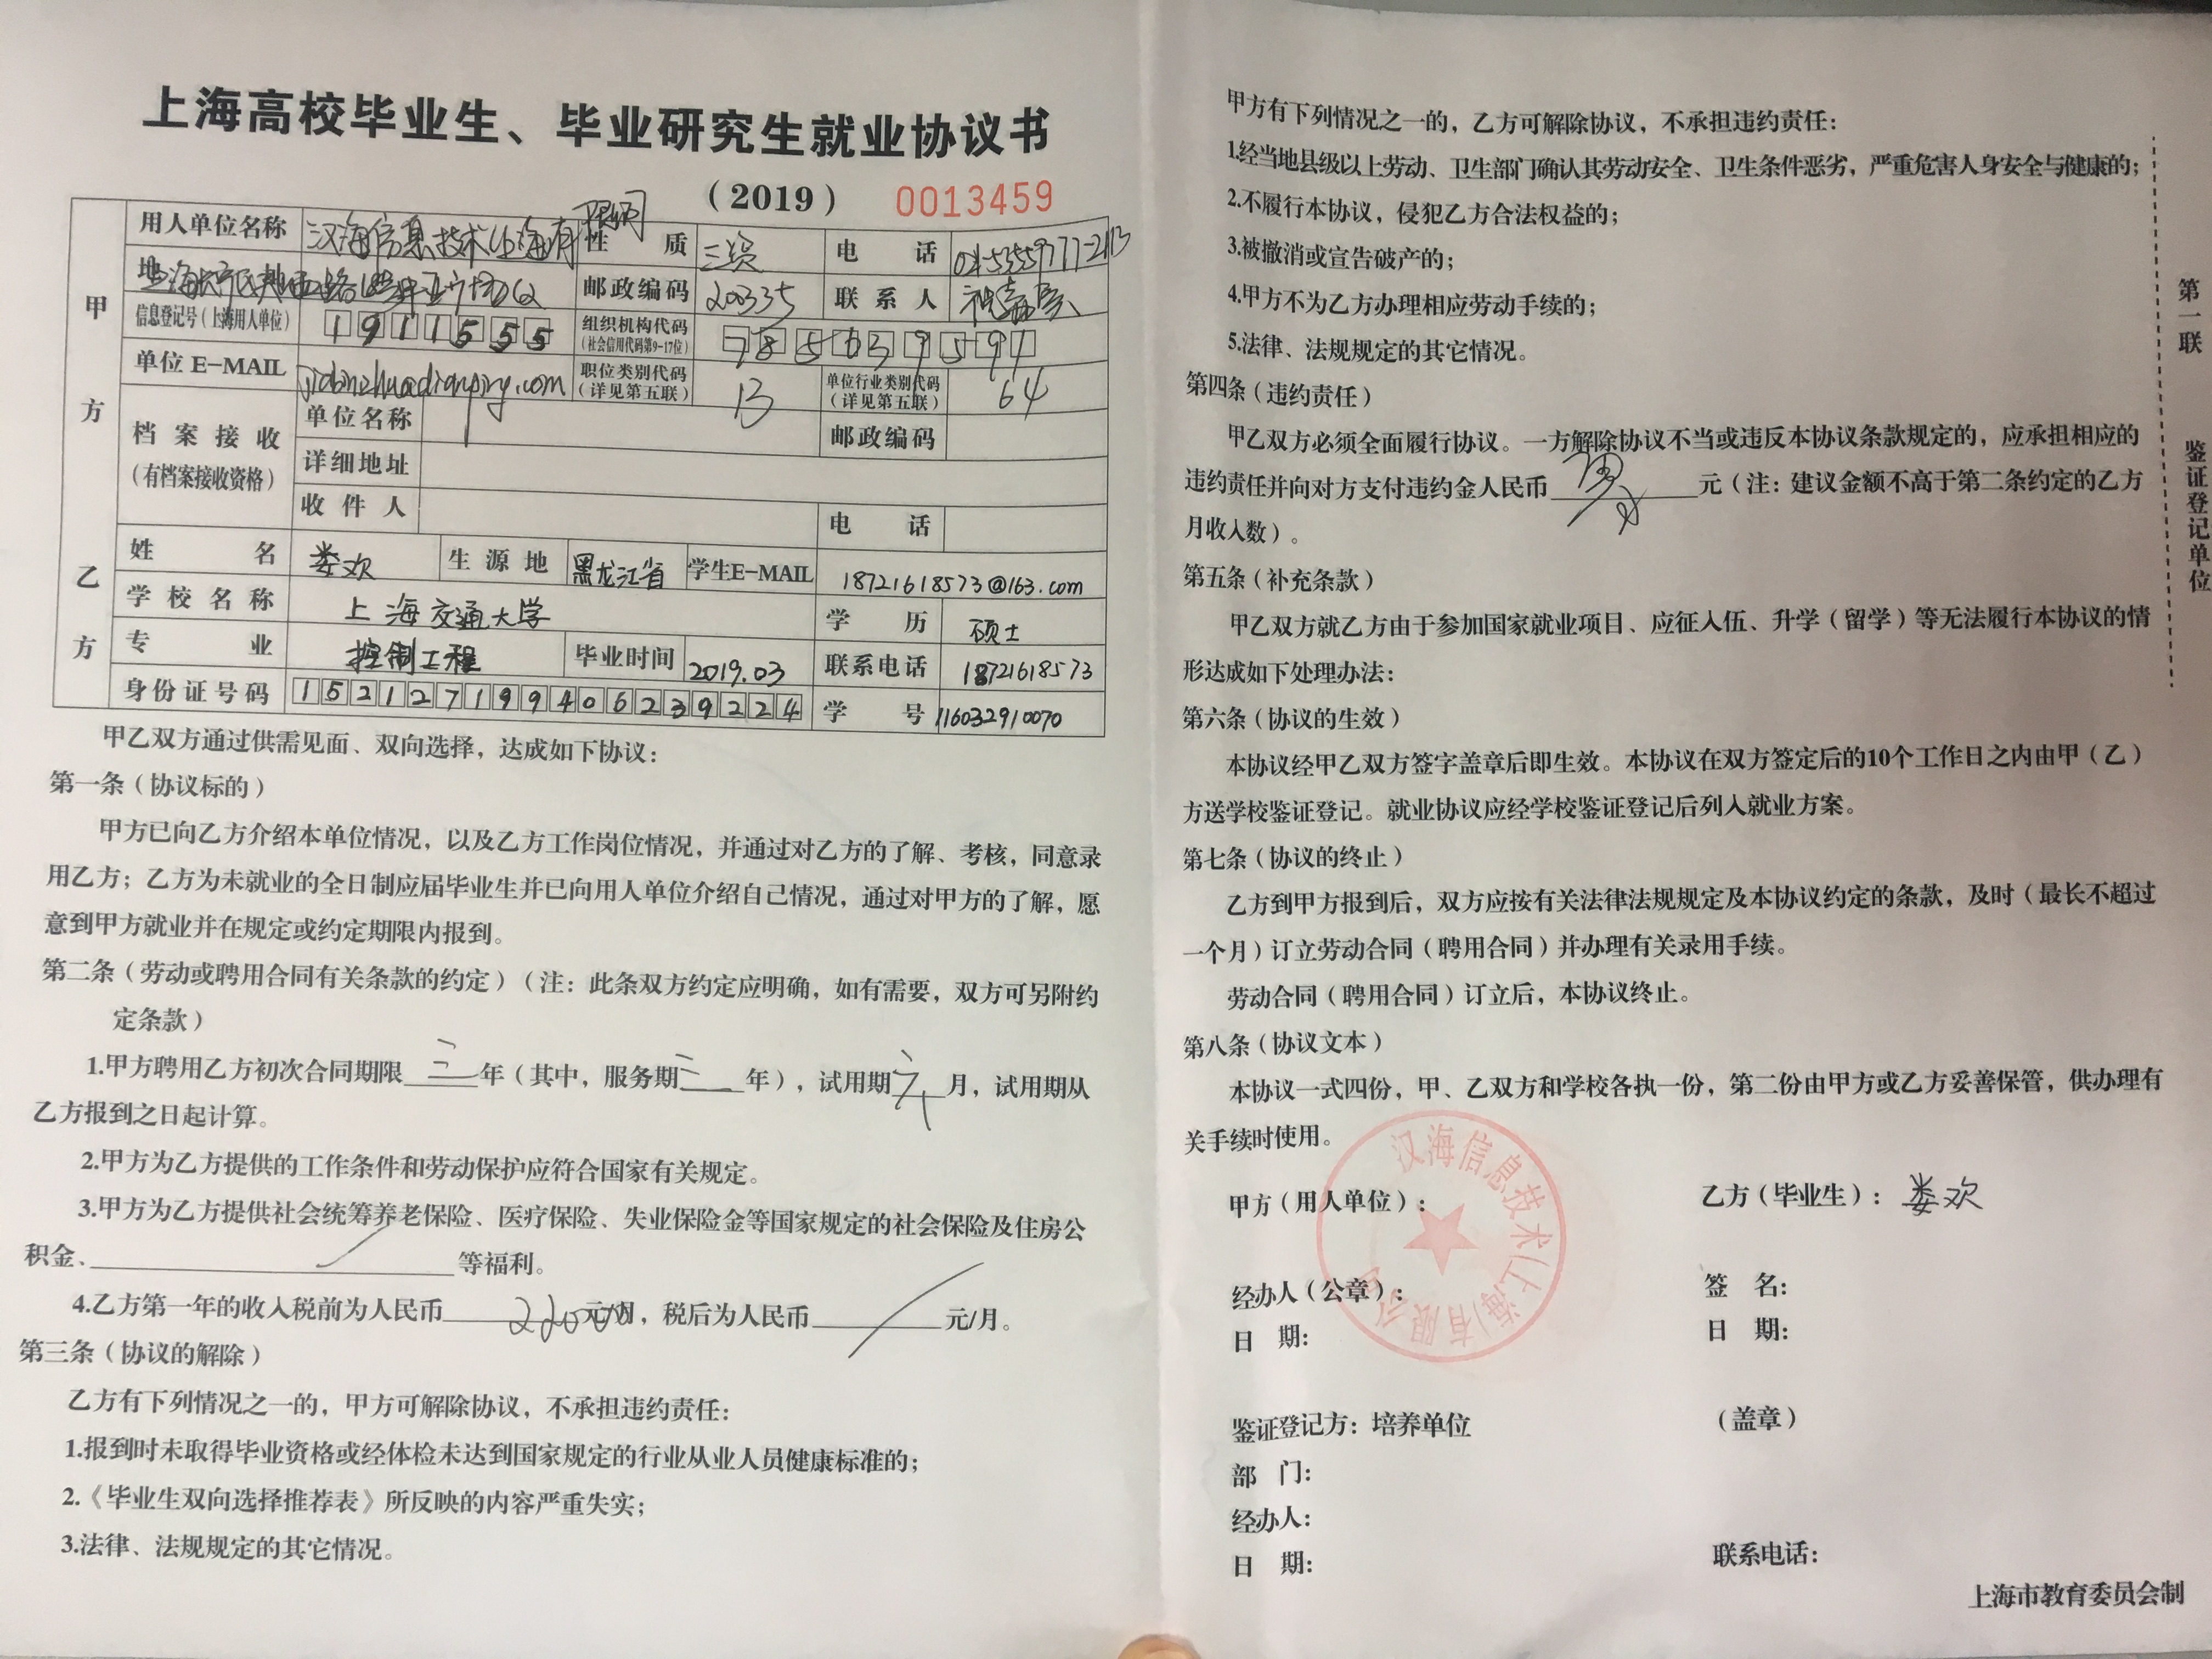 上海高校毕业生、毕业研究生就业协议书
（2019） 0013459
甲方
用人单位名称 汉海信息技术(上海)有限公司 性 质 三资 电 话
地 邮政编码 200335 联系人
信息登记号（上海用人单位） 1911555 组织机构代码（社会信用代码第9-17位）
单位 E-MAIL 职位类别代码（详见第五联） 13 单位行业类别代码（详见第五联） 64
档案接收（有档案接收资格） 单位名称 邮政编码
详细地址
收件人 电 话
乙方
姓 名 娄欢 生源地 黑龙江省 学生E-MAIL 18721618573@163.com
学校名称 上海交通大学 学 历 硕士
专 业 控制工程 毕业时间 2019.03 联系电话 18721618573
身份证号码 152127199406239224 学 号 116032910070
甲乙双方通过供需见面、双向选择，达成如下协议：
第一条（协议标的）
甲方已向乙方介绍本单位情况，以及乙方工作岗位情况，并通过对乙方的了解、考核，同意录
用乙方；乙方为未就业的全日制应届毕业生并已向用人单位介绍自己情况，通过对甲方的了解，愿
意到甲方就业并在规定或约定期限内报到。
第二条（劳动或聘用合同有关条款的约定）（注：此条双方约定应明确，如有需要，双方可另附约
定条款）
1.甲方聘用乙方初次合同期限 三 年（其中，服务期 三 年），试用期 六个 月，试用期从
乙方报到之日起计算。
2.甲方为乙方提供的工作条件和劳动保护应符合国家有关规定。
3.甲方为乙方提供社会统筹养老保险、医疗保险、失业保险金等国家规定的社会保险及住房公
积金、 等福利。
4.乙方第一年的收入税前为人民币 22000 元/月，税后为人民币 元/月。
第三条（协议的解除）
乙方有下列情况之一的，甲方可解除协议，不承担违约责任：
1.报到时未取得毕业资格或经体检未达到国家规定的行业从业人员健康标准的；
2.《毕业生双向选择推荐表》所反映的内容严重失实；
3.法律、法规规定的其它情况。
甲方有下列情况之一的，乙方可解除协议，不承担违约责任：
1.经当地县级以上劳动、卫生部门确认其劳动安全、卫生条件恶劣，严重危害人身安全与健康的；
2.不履行本协议，侵犯乙方合法权益的；
3.被撤消或宣告破产的；
4.甲方不为乙方办理相应劳动手续的；
5.法律、法规规定的其它情况。
第四条（违约责任）
甲乙双方必须全面履行协议。一方解除协议不当或违反本协议条款规定的，应承担相应的
违约责任并向对方支付违约金人民币 元（注：建议金额不高于第二条约定的乙方
月收入数）。
第五条（补充条款）
甲乙双方就乙方由于参加国家就业项目、应征入伍、升学（留学）等无法履行本协议的情
形达成如下处理办法：
第六条（协议的生效）
本协议经甲乙双方签字盖章后即生效。本协议在双方签定后的10个工作日之内由甲（乙）
方送学校鉴证登记。就业协议应经学校鉴证登记后列入就业方案。
第七条（协议的终止）
乙方到甲方报到后，双方应按有关法律法规规定及本协议约定的条款，及时（最长不超过
一个月）订立劳动合同（聘用合同）并办理有关录用手续。
劳动合同（聘用合同）订立后，本协议终止。
第八条（协议文本）
本协议一式四份，甲、乙双方和学校各执一份，第二份由甲方或乙方妥善保管，供办理有
关手续时使用。
甲方（用人单位）： 乙方（毕业生）：娄欢
经办人（公章）： 签 名：
日 期： 日 期：
汉海信息技术(上海)有限公司
鉴证登记方：培养单位 （盖章）
部 门：
经办人：
日 期： 联系电话：
上海市教育委员会制
第一联 鉴证登记单位